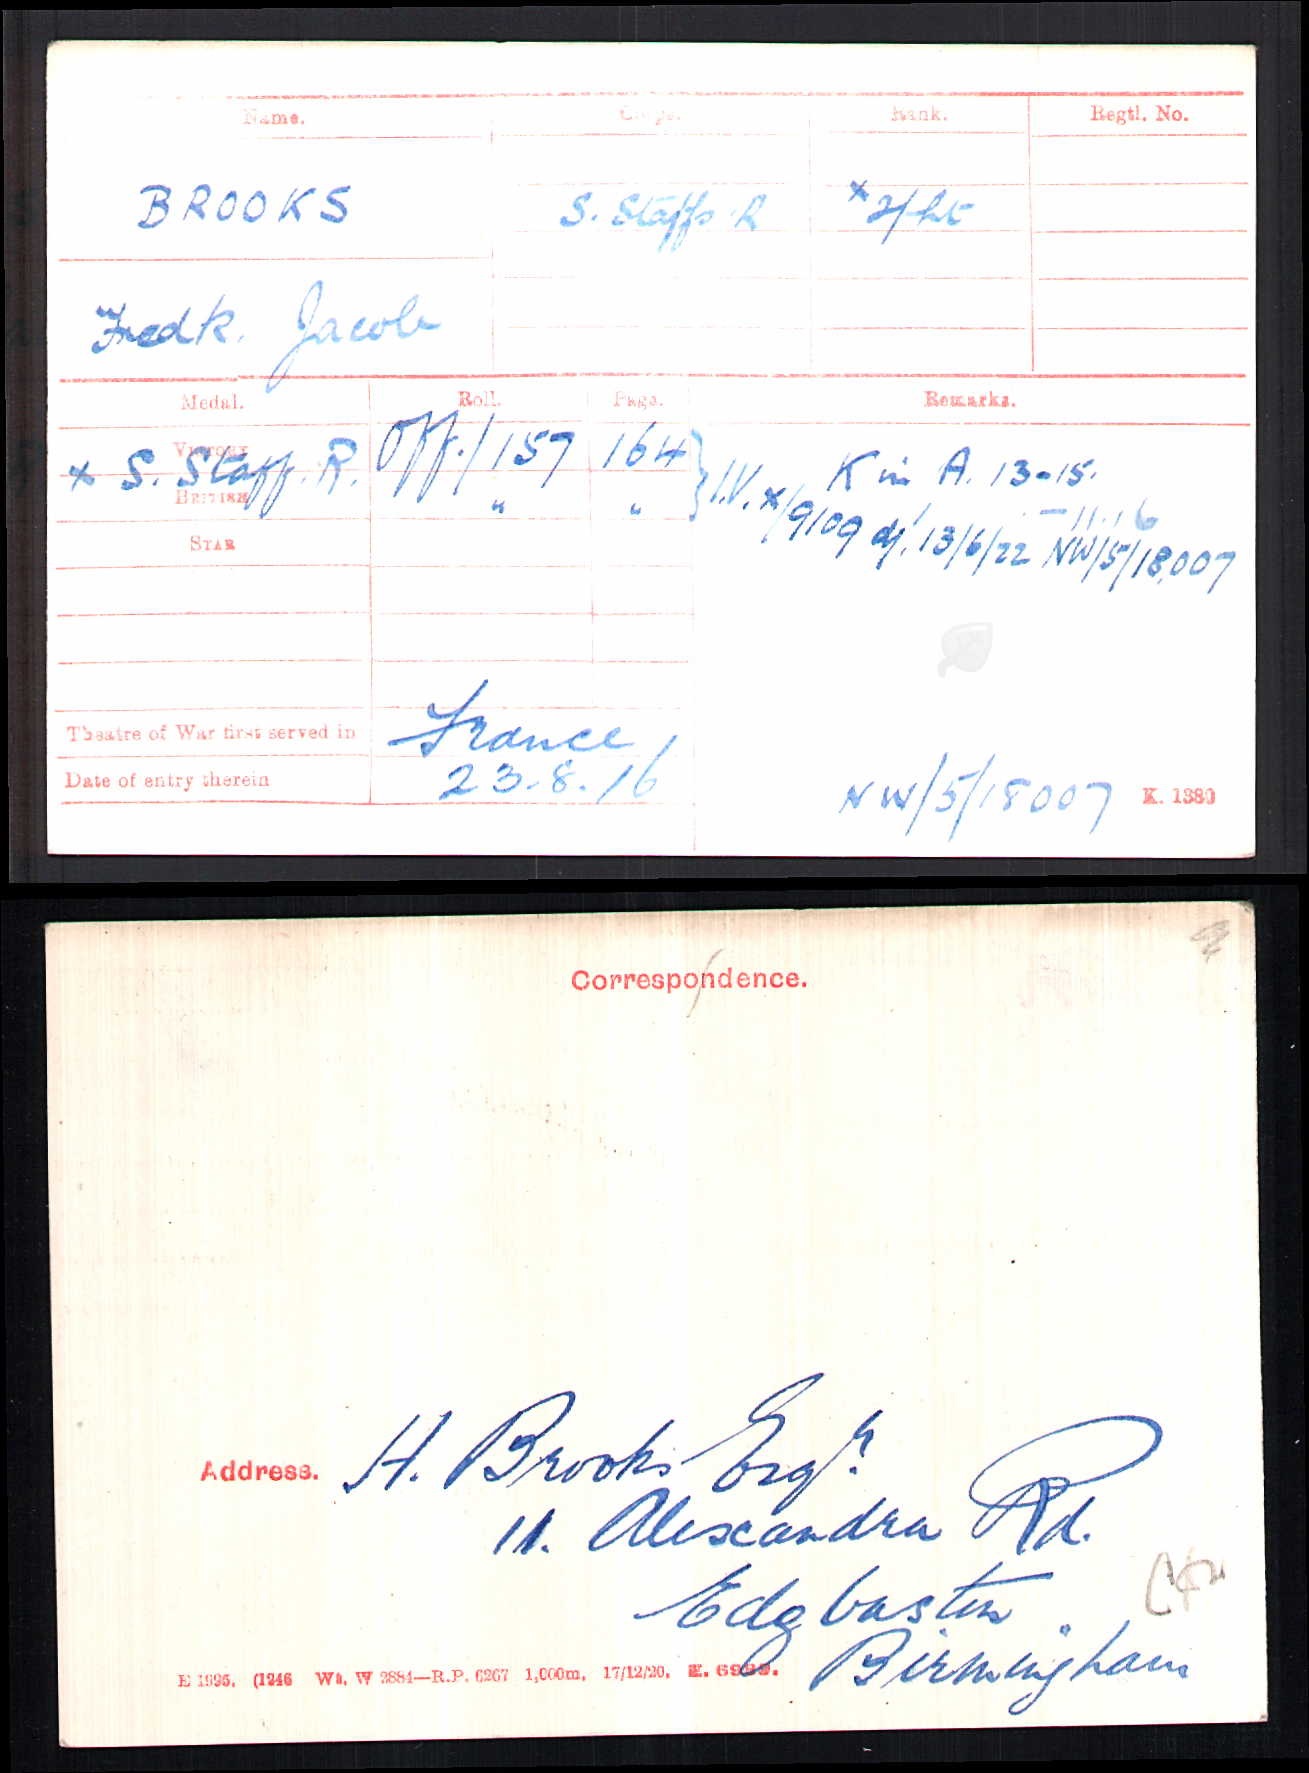 Name. Corps. Rank. Regtl. No.
BROOKS S. Staffs R x 2/Lt
Fredk. Jacob
Medal. Roll. Page. Remarks.
Victory
x S. Staff. R. Off./157 164 } I.V. x/9109 df. 13/6/22 NW/5/18007
British " "
K in A. 13-15.
-11.16
Star
Theatre of War first served in France
Date of entry therein 23.8.16
NW/5/18007 K. 1380
Correspondence.
Address. H. Brooks Esqr.
11. Alexandra Rd.
Edgbaston.
Birmingham
E 1995. (1246 Wt. W 2884—R.P. 6267 1,000m. 17/12/20.